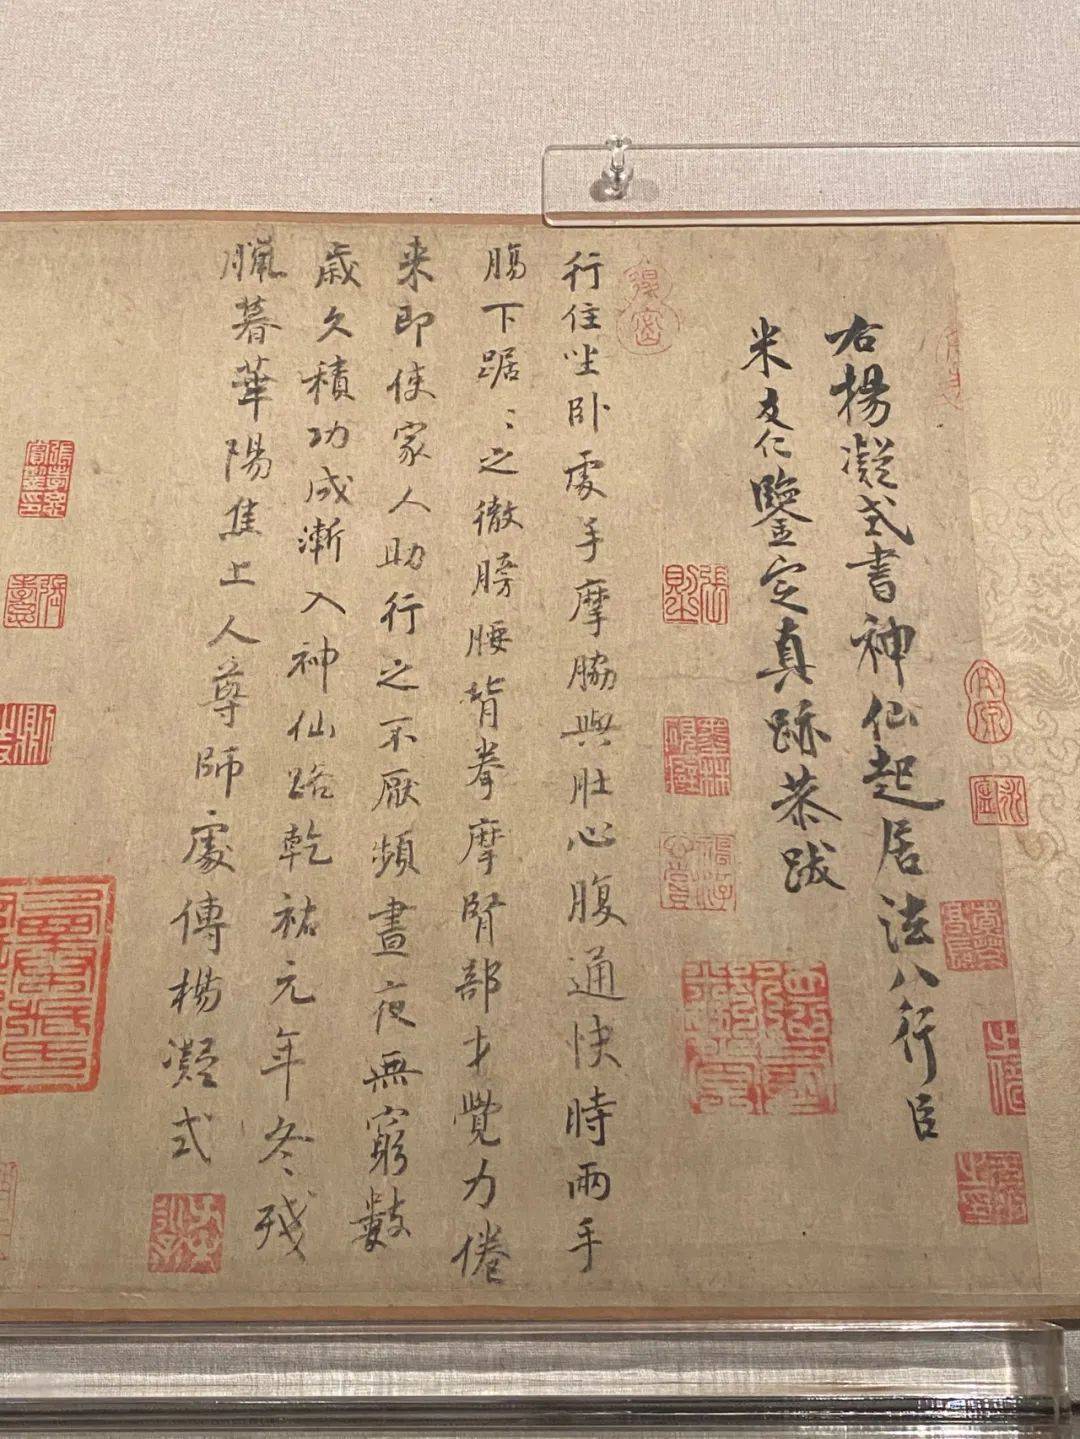 右楊凝式書神仙起居法八行臣
米友仁鑒定真跡恭跋
行住坐卧處手摩脇與肚心腹通快時兩手
腸下踞〻之徹膀腰背拳摩腎部才覺力倦
来即使家人助行之不厭頻晝夜無窮數
歲久積功成漸入神仙路乾祐元年冬殘
臘暮華陽焦上人尊師處傳楊凝式